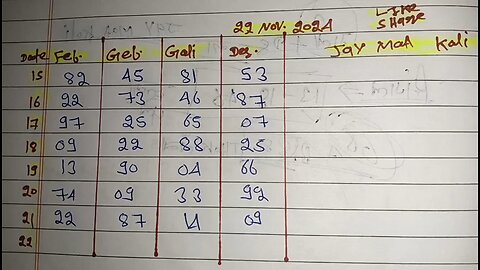 Like
22 NOV. 2024 SHARE
Date Feb. Geb. Gali Des. JAY MAA Kali
15 82 45 81 53
16 22 73 46 87
17 97 25 65 07
18 09 22 88 25
19 13 90 04 66
20 74 09 33 92
21 22 87 14 09
22